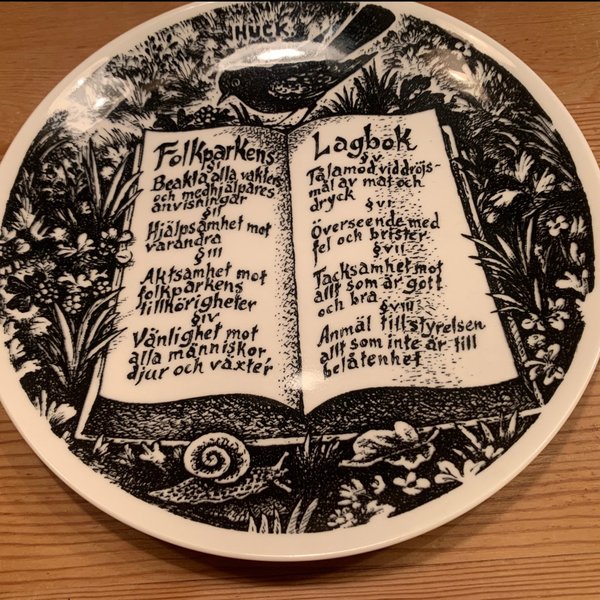 HUCK
Folkparkens
Beakta alla vakters
och medhjälpares
anvisningar
§ II
Hjälpsamhet mot
varandra
§ III
Aktsamhet mot
folkparkens
tillhörigheter
§ IV
Vänlighet mot
alla människor
djur och växter
Lagbok
§ V
Tålamod vid dröjs-
mål av mat och
dryck
§ VI
Överseende med
fel och brister
§ VII
Tacksamhet mot
allt som är gott
och bra
§ VIII
Anmäl till styrelsen
allt som inte är till
belåtenhet